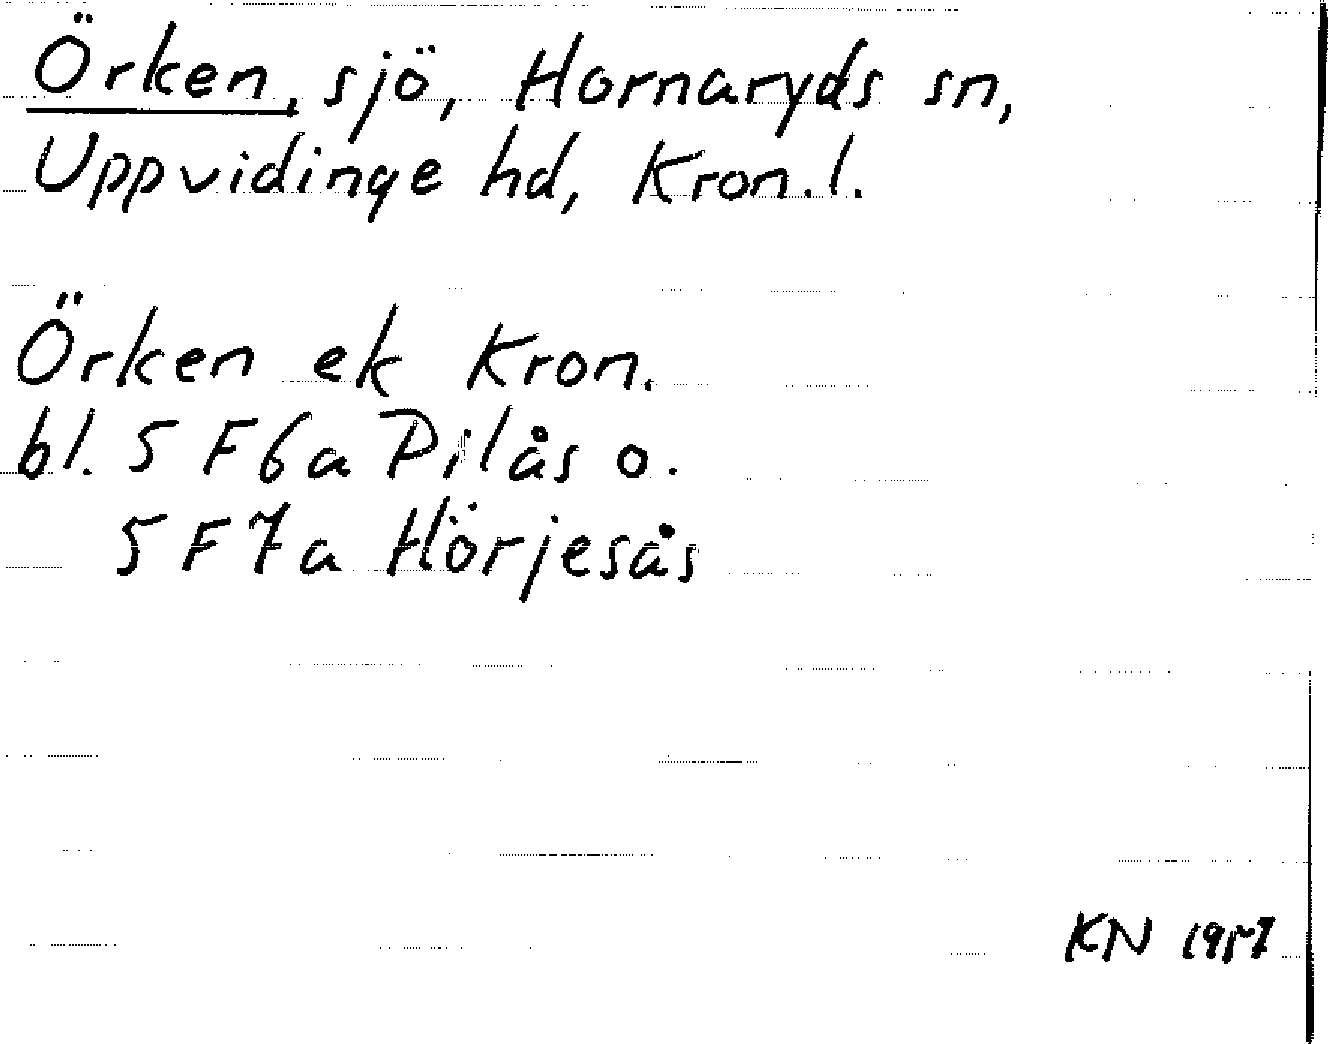 Örken, sjö, Hornaryds sn,
Uppvidinge hd, Kron. l.
Örken ek Kron.
bl. 5 F 6a Pilås o.
5 F 7a Hörjesås
KN 1957